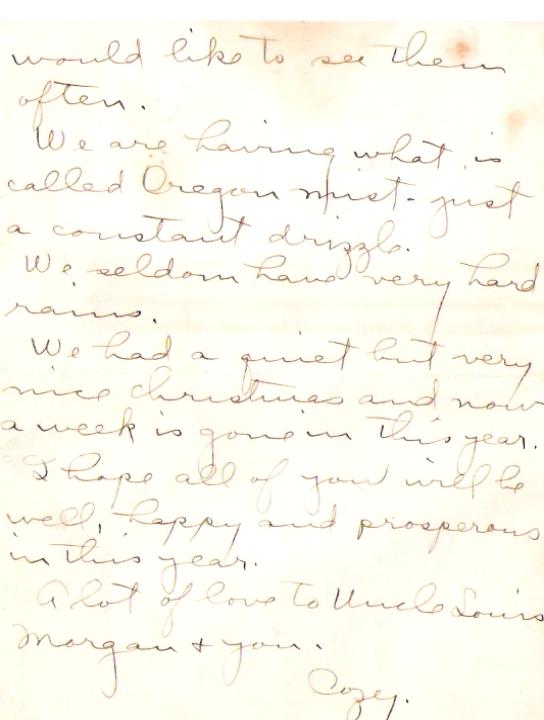 would like to see them
often.
We are having what is
called Oregon mist - just
a constant drizzle.
We seldom have very hard
rains.
We had a quiet but very
nice Christmas and now
a week is gone in this year.
I hope all of you will be
well, happy and prosperous
in this year.
A lot of love to Uncle Louis
Morgan + you.
Cozey.